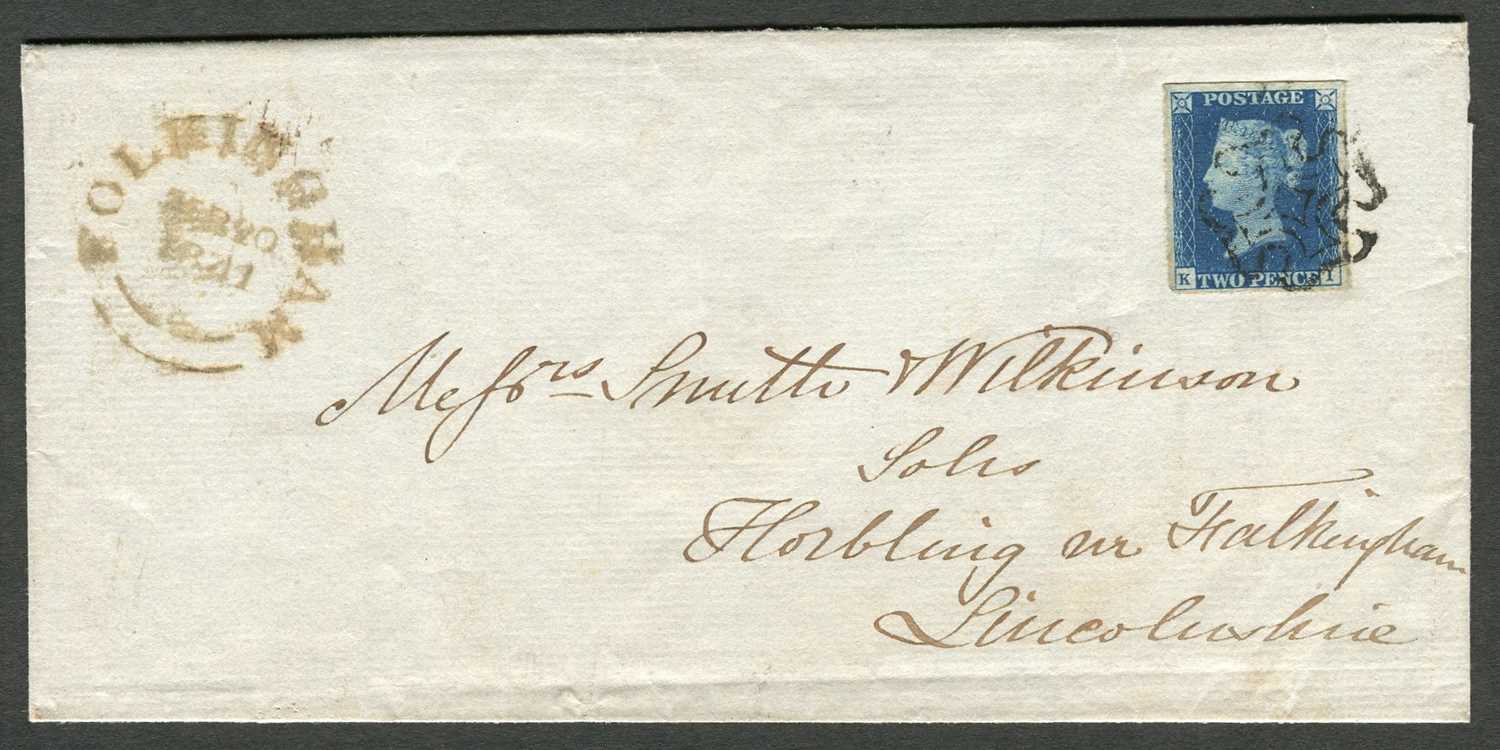 FOLKINGHAM
1841
POSTAGE
K TWO PENCE I
Messrs Smith & Wilkinson
Solrs
Horbling nr Falkingham
Lincolnshire